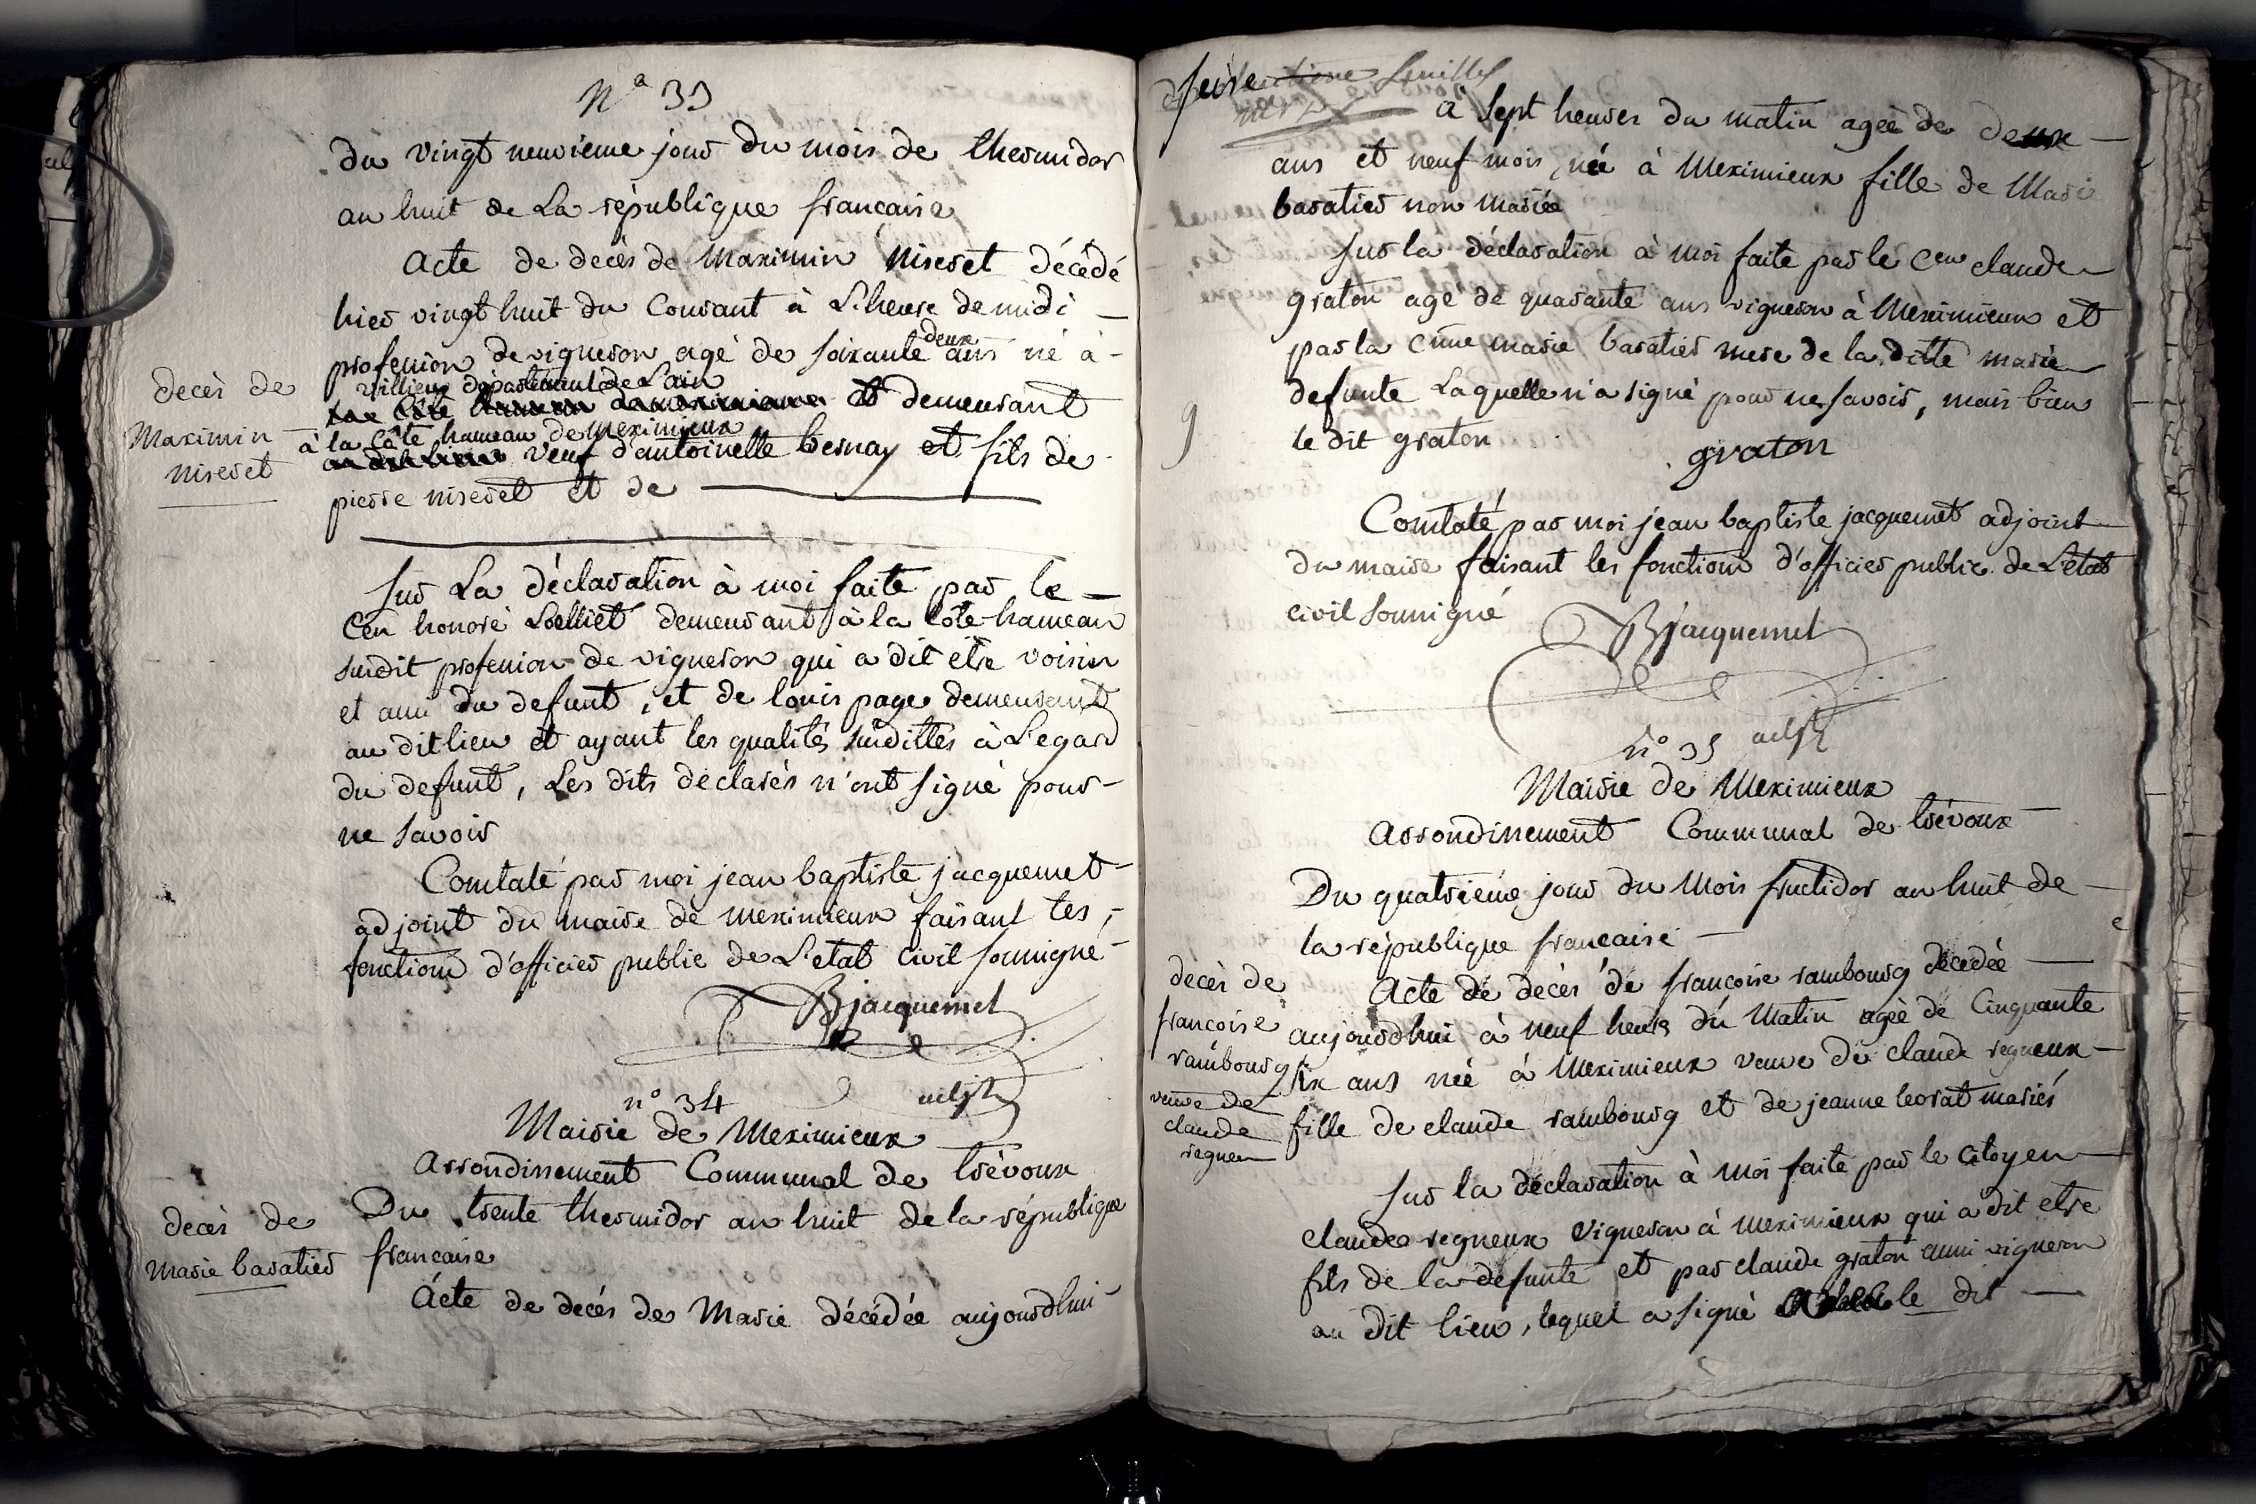 N° 33
du vingt neuvieme jour du mois de thermidor
an huit de La république française
Acte de decès de Maximin niseret décédé
hier vingt huit du Courant à L'heure de midi —
profession de vigneron agé de soixante deux ans né à -
villieu département de Lain et demeurant
à la Côte hameau de meximieux
veuf d'antoinette bernay et fils de
pierre niseret et de —
decès de
Maximin
niseret
Sur La déclaration à moi faite par le —
Cen honoré demeurant à la Côte hameau
susdit profession de vigneron qui a dit etre voisin
et ami du defunt, et de louis page demeurant
au dit lieu et ayant les qualités susdittes à L'egard
du defunt, Les dits declarés n'ont signé pour -
ne savoir
Constaté par moi jean baptiste jacquemet
adjoint du maire de meximieux faisant les -
fonctions d'officier public de L'etat civil soussigné -
Bjacquemet
adjt
n° 34
Mairie de Meximieux
Arrondissement Communal de trévoux
Du trente thermidor an huit de la république
française
decès de
Marie baratier
Acte de decés de Marie décédée aujourdhui -
à sept heures du matin agée de deux —
ans et neuf mois née à Meximieux fille de Marie
baratier non mariée
Sur la déclaration à moi faite par le Cen claude
graton agé de quarante ans vigneron à Meximieux et
par la Cnne marie baratier mere de la ditte marie
defunte Laquelle n'a signé pour ne savoir, mais bien
le dit graton
graton
Constaté par moi jean baptiste jacquemet adjoint
du maire faisant les fonctions d'officier public de L'état
civil soussigné
Bjacquemet
adjt
n° 35
Mairie de Meximieux
Arrondissement Communal de trévoux —
Du quatrieme jour du Mois fructidor an huit de —
la république française —
decès de
françoise
rambourg
veuve de
claude
regneu
Acte de décès de françoise rambourg décédée —
aujourdhui à neuf heures du Matin agée de Cinquante
six ans née à Meximieux veuve de claude regneux —
fille de claude rambourg et de jeanne mariés
Sur la déclaration à moi faite par le Citoyen —
claude regneux vigneron à meximieux qui a dit etre
fils de la defunte et par claude graton aussi vigneron
au dit lieu, lequel a signé le dit —